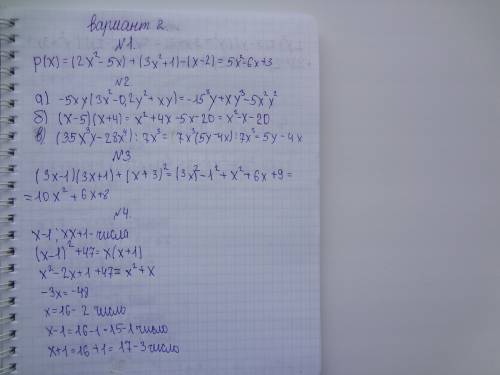 вариант 2.
№1.
p(x) = (2x²-5x) + (3x²+1) - (x-2) = 5x²-6x+3
№2
а) -5xy(3x²-0,2y²+xy) = -15³y+xy³-5x²y²
б) (x-5)(x+4) = x²+4x-5x-20 = x²-x-20
в) (35x³y-28x⁴) : 7x³ = 7x³(5y-4x) : 7x³ = 5y-4x
№3
(3x-1)(3x+1) + (x+3)² = (3x)²-1²+x²+6x+9 =
= 10x²+6x+8
№4.
x-1; x x+1 - числа
(x-1)²+47 = x(x+1)
x²-2x+1+47 = x²+x
-3x = -48
x = 16 - 2 число
x-1 = 16-1 = 15 - 1 число
x+1 = 16+1 = 17 - 3 число